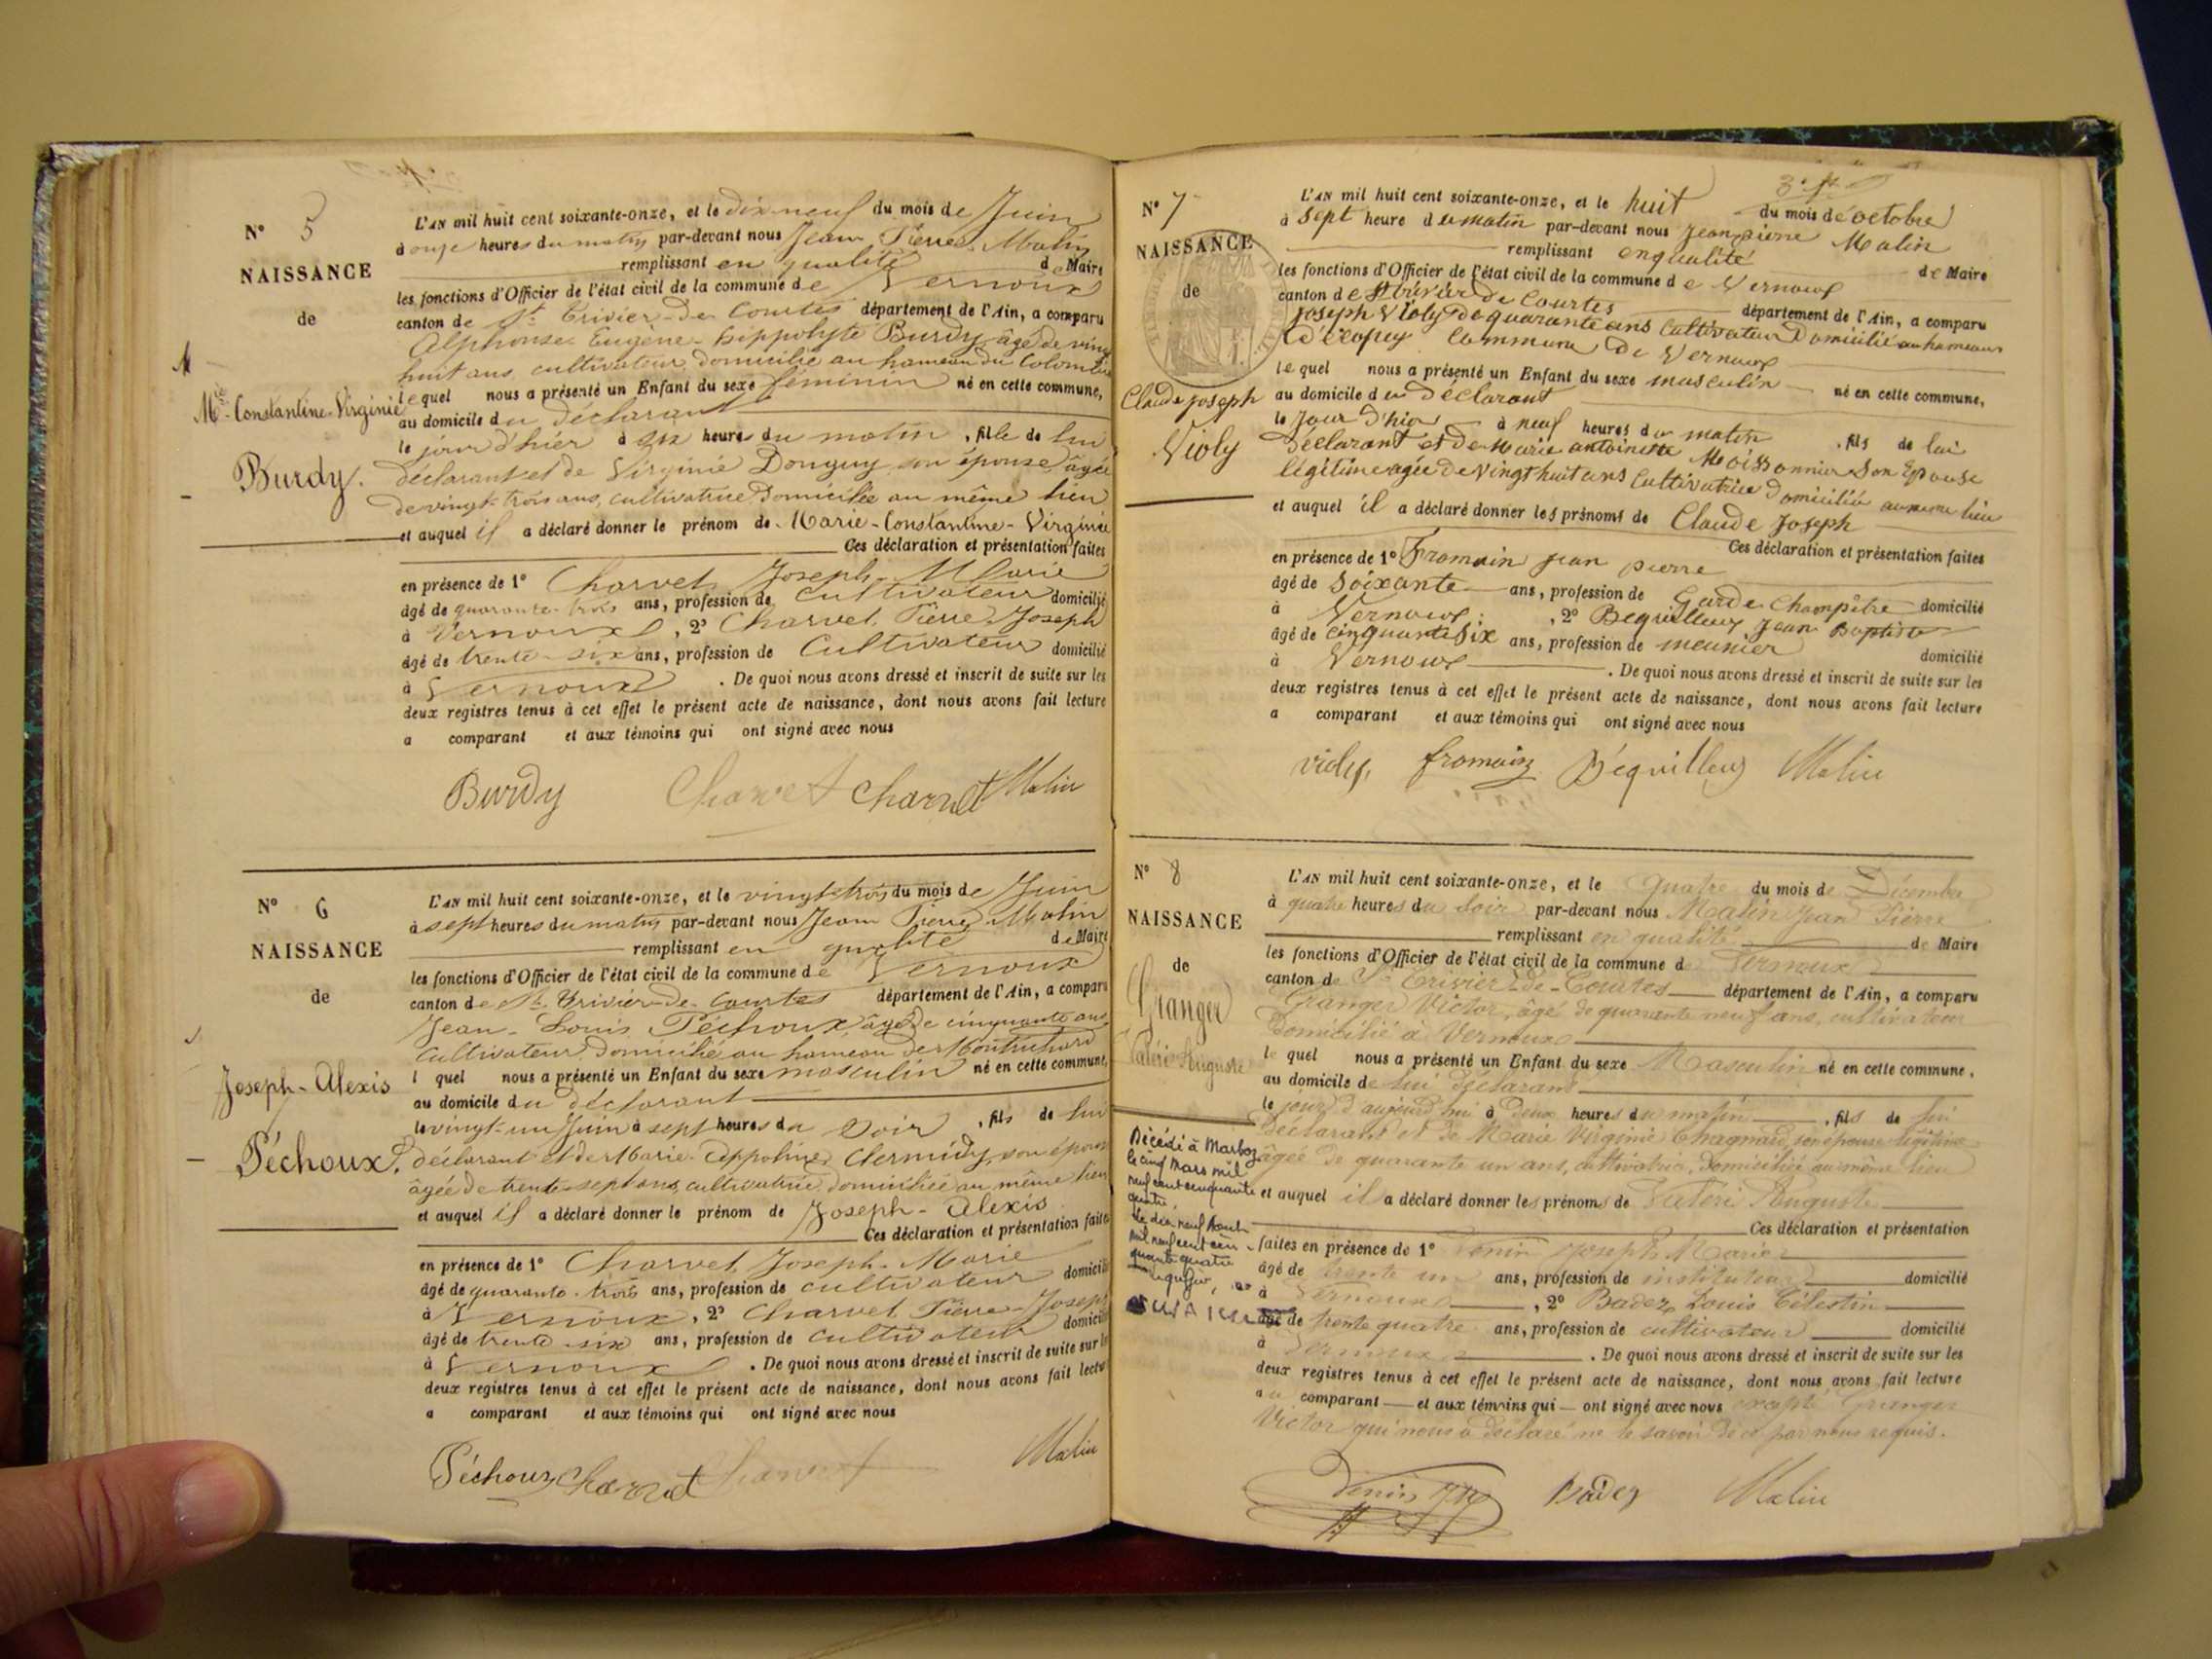 N° 5
NAISSANCE
de
Mie-Constantine-Virginie
Burdy.
L'AN mil huit cent soixante-onze, et le dix-neuf du mois de Juin
à onze heures du matin par-devant nous Jean Pierre Malin
remplissant en qualité de Maire
les fonctions d'Officier de l'état civil de la commune de Vernoux
canton de St Trivier-de-Courtes département de l'Ain, a comparu
Alphonse Eugène-hippolyte Burdy âgé de vingt
huit ans, cultivateur, domicilié au hameau du Colombier
lequel nous a présenté un Enfant du sexe féminin né en cette commune,
au domicile du déclarant
le jour d'hier à six heures du matin, fille de lui
déclarant et de Virginie Donguy son épouse âgée
de vingt-trois ans, cultivatrice domiciliée au même lieu
et auquel il a déclaré donner le prénom de Marie-Constantine-Virginie
Ces déclaration et présentation faites
en présence de 1° Charvet Joseph-Marie
âgé de quarante-trois ans, profession de Cultivateur domicilié
à Vernoux, 2° Charvet Pierre-Joseph
âgé de trente-six ans, profession de Cultivateur domicilié
à Vernoux. De quoi nous avons dressé et inscrit de suite sur les
deux registres tenus à cet effet le présent acte de naissance, dont nous avons fait lecture
a comparant et aux témoins qui ont signé avec nous
Burdy Charvet Charvet Malin
N° 6
NAISSANCE
de
Joseph-Alexis
Péchoux.
L'AN mil huit cent soixante-onze, et le vingt-trois du mois de Juin
à sept heures du matin par-devant nous Jean Pierre Malin
remplissant en qualité de Maire
les fonctions d'Officier de l'état civil de la commune de Vernoux
canton de St Trivier-de-Courtes département de l'Ain, a comparu
Jean-Louis Péchoux âgé de cinquante ans
Cultivateur, domicilié au hameau de
l quel nous a présenté un Enfant du sexe masculin né en cette commune,
au domicile du déclarant
le vingt-un Juin à sept heures du Soir, fils de lui
déclarant et de Marie-Appoline Clermidy, son épouse
âgée de trente-sept ans, cultivatrice domiciliée au même lieu
et auquel il a déclaré donner le prénom de Joseph-Alexis
Ces déclaration et présentation faites
en présence de 1° Charvet Joseph-Marie
âgé de quarante-trois ans, profession de cultivateur domicilié
à Vernoux, 2° Charvet Pierre-Joseph
âgé de trente-six ans, profession de cultivateur domicilié
à Vernoux. De quoi nous avons dressé et inscrit de suite sur les
deux registres tenus à cet effet le présent acte de naissance, dont nous avons fait lecture
a comparant et aux témoins qui ont signé avec nous
Péchoux Charvet Charvet Malin
N° 7
NAISSANCE
de
Claude joseph
Violy
L'AN mil huit cent soixante-onze, et le huit du mois de octobre
à sept heure du matin par-devant nous jean pierre Malin
remplissant en qualité de Maire
les fonctions d'Officier de l'état civil de la commune de Vernoux
canton de St trivier de Courtes département de l'Ain, a comparu
joseph Violy de quarante ans Cultivateur Domicilié au hameau
commune de Vernoux
le quel nous a présenté un Enfant du sexe masculin né en cette commune,
au domicile du Déclarant
le Jour d'hier à neuf heures du matin, fils de lui
Déclarant et de Marie antoinette Moissonnier Son Epouse
légitime agée de vingt huit ans Cultivatrice Domiciliée au meme lieu
et auquel il a déclaré donner les prénoms de Claude Joseph
Ces déclaration et présentation faites
en présence de 1° Fromain jean pierre
âgé de Soixante ans, profession de Garde Champêtre domicilié
à Vernoux, 2° Bequilleux Jean Baptiste
âgé de Cinquante Six ans, profession de meunier domicilié
à Vernoux. De quoi nous avons dressé et inscrit de suite sur les
deux registres tenus à cet effet le présent acte de naissance, dont nous avons fait lecture
a comparant et aux témoins qui ont signé avec nous
violy, fromain Béquilleux Malin
N° 8
NAISSANCE
de
Granger
Valéri Auguste
Décédé à Marboz
le cinq Mars mil
neuf cent cinquante
quatre.
Le dix neuf Août
mil neuf cent cin-
quante quatre
L'AN mil huit cent soixante-onze, et le Quatre du mois de Décembre
à quatre heures du Soir par-devant nous Malin Jean Pierre
remplissant en qualité de Maire
les fonctions d'Officier de l'état civil de la commune de Vernoux
canton de St Trivier-de-Courtes département de l'Ain, a comparu
Granger Victor, âgé de quarante neuf ans, cultivateur
domicilié à Vernoux
le quel nous a présenté un Enfant du sexe Masculin né en cette commune,
au domicile de lui déclarant
le jour d'aujourd'hui à deux heures du matin, fils de lui
Déclarant et de Marie Virginie Chagnard, son épouse légitime
agée de quarante un ans, cultivatrice, domiciliée au même lieu
et auquel il a déclaré donner les prénoms de Valéri Auguste
Ces déclaration et présentation
faites en présence de 1° Venin Joseph Marie
âgé de trente un ans, profession de instituteur domicilié
à Vernoux, 2° Badez Louis Célestin
âgé de trente quatre ans, profession de cultivateur domicilié
à Vernoux. De quoi nous avons dressé et inscrit de suite sur les
deux registres tenus à cet effet le présent acte de naissance, dont nous avons fait lecture
au comparant et aux témoins qui ont signé avec nous excepté Granger
Victor qui nous a déclaré ne le savoir de ce par nous requis.
Venin Badez Malin